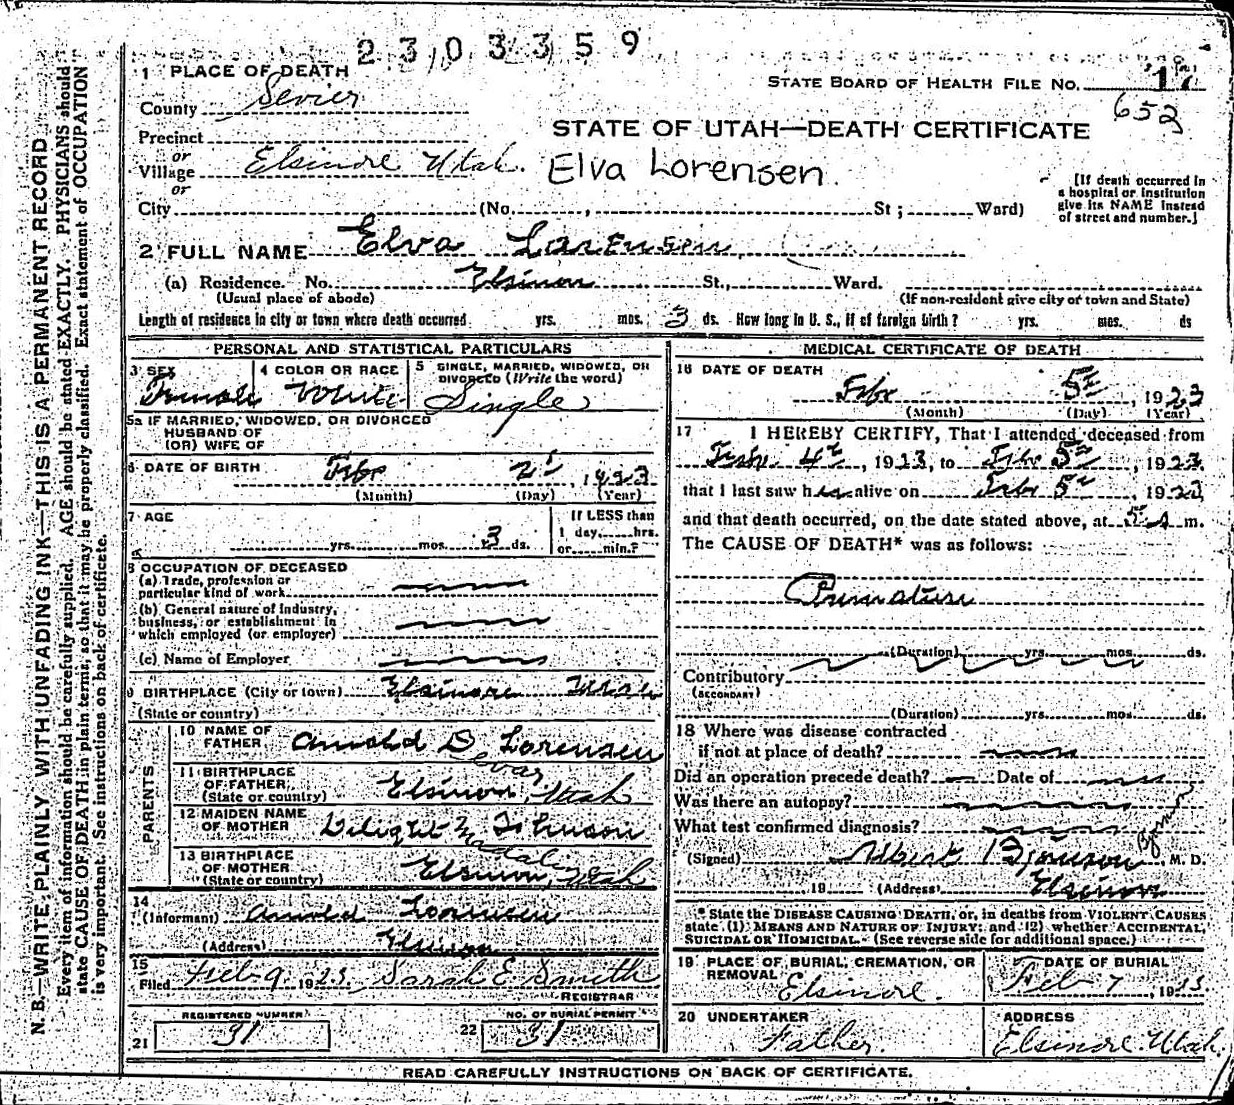 2303359
1 PLACE OF DEATH
STATE BOARD OF HEALTH FILE NO. 17
County Sevier
652
STATE OF UTAH—DEATH CERTIFICATE
Precinct
or
Village Elsinore Utah. Elva Lorensen.
or
City (No. , St ; Ward)
[If death occurred in
a hospital or institution
give its NAME instead
of street and number.]
2 FULL NAME Elva Lorensen
(a) Residence. No. Elsinore St., Ward.
(Usual place of abode) (If non-resident give city or town and State)
Length of residence in city or town where death occurred yrs. mos. 3 ds. How long in U. S., if of foreign birth? yrs. mos. ds
PERSONAL AND STATISTICAL PARTICULARS
3 SEX Female
4 COLOR OR RACE White
5 SINGLE, MARRIED, WIDOWED, OR
DIVORCED (Write the word)
Single
5a IF MARRIED, WIDOWED, OR DIVORCED
HUSBAND OF
(OR) WIFE OF
6 DATE OF BIRTH Febr 2d, 1923
(Month) (Day) (Year)
7 AGE
yrs. mos. 3 ds.
If LESS than
1 day, hrs.
or min.?
8 OCCUPATION OF DECEASED
(a) Trade, profession or
particular kind of work
(b) General nature of industry,
business, or establishment in
which employed (or employer)
(c) Name of Employer
9 BIRTHPLACE (City or town) Elsinore Utah
(State or country)
PARENTS
10 NAME OF
FATHER Arnold D Lorensen
Devar
11 BIRTHPLACE
OF FATHER
(State or country) Elsinore, Utah
12 MAIDEN NAME
OF MOTHER Delight M Johnson
13 BIRTHPLACE
OF MOTHER
(State or country) Elsinore, Utah
14
(Informant) Arnold Lorensen
(Address) Elsinore
15
Filed Feb 9, 1923. Sarah E Smith
REGISTRAR
21 REGISTERED NUMBER
31
22 NO. OF BURIAL PERMIT
31
MEDICAL CERTIFICATE OF DEATH
16 DATE OF DEATH
Febr 5th, 1923
(Month) (Day) (Year)
17 I HEREBY CERTIFY, That I attended deceased from
Febr 4th, 1923, to Febr 5th, 1923
that I last saw her alive on Febr 5th, 1923
and that death occurred, on the date stated above, at 5 A m.
The CAUSE OF DEATH* was as follows:
Premature
(Duration) yrs. mos. ds.
Contributory
(SECONDARY)
(Duration) yrs. mos. ds.
18 Where was disease contracted
if not at place of death?
Did an operation precede death? Date of
Was there an autopsy?
What test confirmed diagnosis?
(Signed) Albert Bjornson M. D.
19 (Address) Elsinore
* State the DISEASE CAUSING DEATH, or, in deaths from VIOLENT CAUSES
state (1) MEANS AND NATURE OF INJURY; and (2) whether ACCIDENTAL,
SUICIDAL OR HOMICIDAL. (See reverse side for additional space.)
19 PLACE OF BURIAL, CREMATION, OR
REMOVAL
Elsinore.
DATE OF BURIAL
Feb 7, 1923.
20 UNDERTAKER
Father.
ADDRESS
Elsinore Utah.
READ CAREFULLY INSTRUCTIONS ON BACK OF CERTIFICATE.
N. B.—WRITE PLAINLY WITH UNFADING INK—THIS IS A PERMANENT RECORD
Every item of information should be carefully supplied. AGE should be stated EXACTLY. PHYSICIANS should
state CAUSE OF DEATH in plain terms, so that it may be properly classified. Exact statement of OCCUPATION
is very important. See instructions on back of certificate.